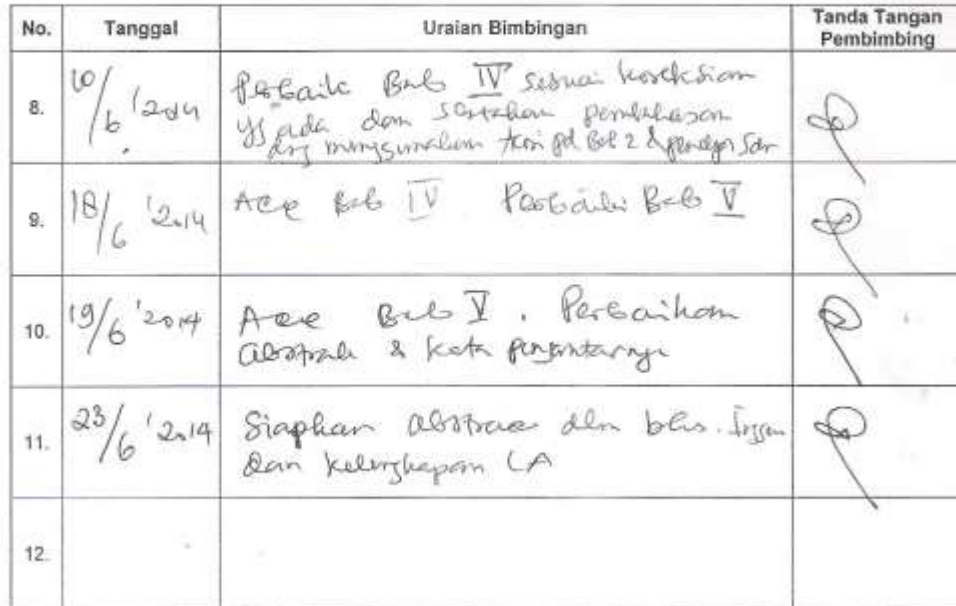 No. Tanggal Uraian Bimbingan Tanda Tangan
Pembimbing
8. 10/6 '2014 Perbaiki Bab IV sesuai koreksian
yg ada dan sertakan pembahasan
dng menggunakan teori pd Bab 2 &
9. 18/6 '2014 Acc Bab IV Perbaiki Bab V
10. 19/6 '2014 Acc Bab V. Perbaikan
abstrak & kata pengantarnya
11. 23/6 '2014 Siapkan abstrac dlm bhs. Inggris
dan kelengkapan LA
12.